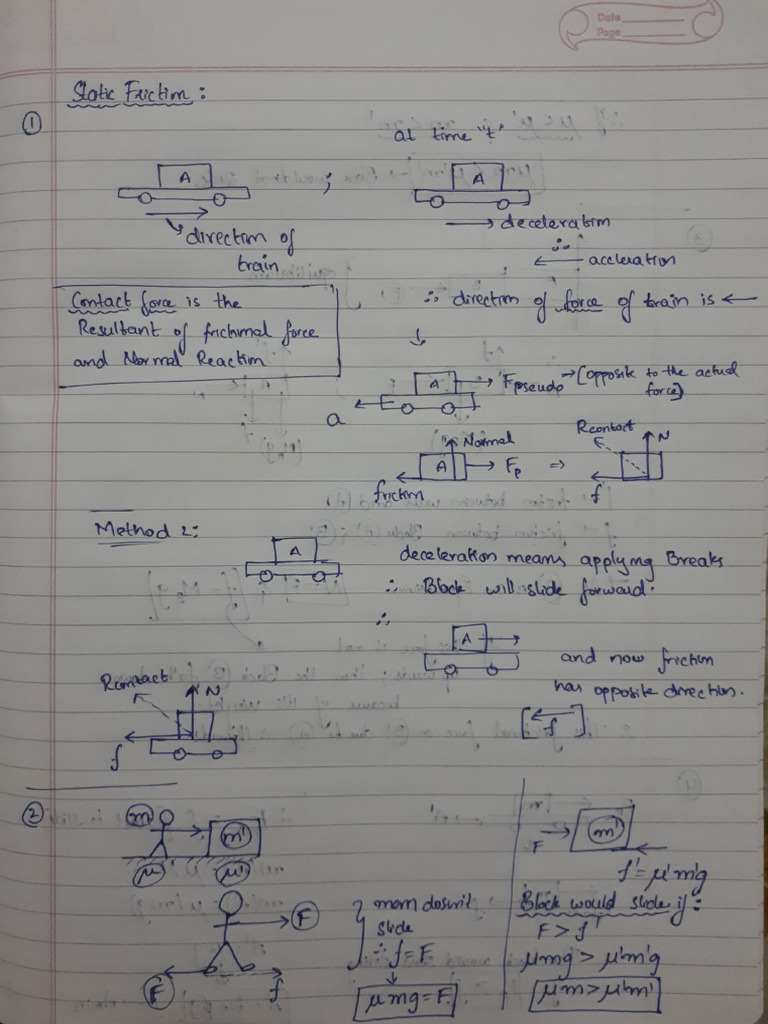 Date
Page
Static Friction :
①
at time "t"
A
;
A
direction of
train
→ deceleration
∴
← accleration
Contact force is the
Resultant of frictional force
and Normal Reaction
∴ direction of force of train is ←
↓
A → Fpseudo → [opposite to the actual
force]
a
Normal
A → Fp ⇒
friction
Rcontact
N
f
Method 2:
A
deceleration means applying Breaks
∴ Block will slide forward.
∴
A
and now friction
has opposite direction.
[← f]
Rcontact
N
f
②
m
m'
μ
μ'
F
F
f
mam dosn't
slide
∴ f = F.
↓
μmg = F.
F →
m'
f' = μ'm'g
Block would slide if :
F > f'
μmg > μ'm'g
μm > μ'm'